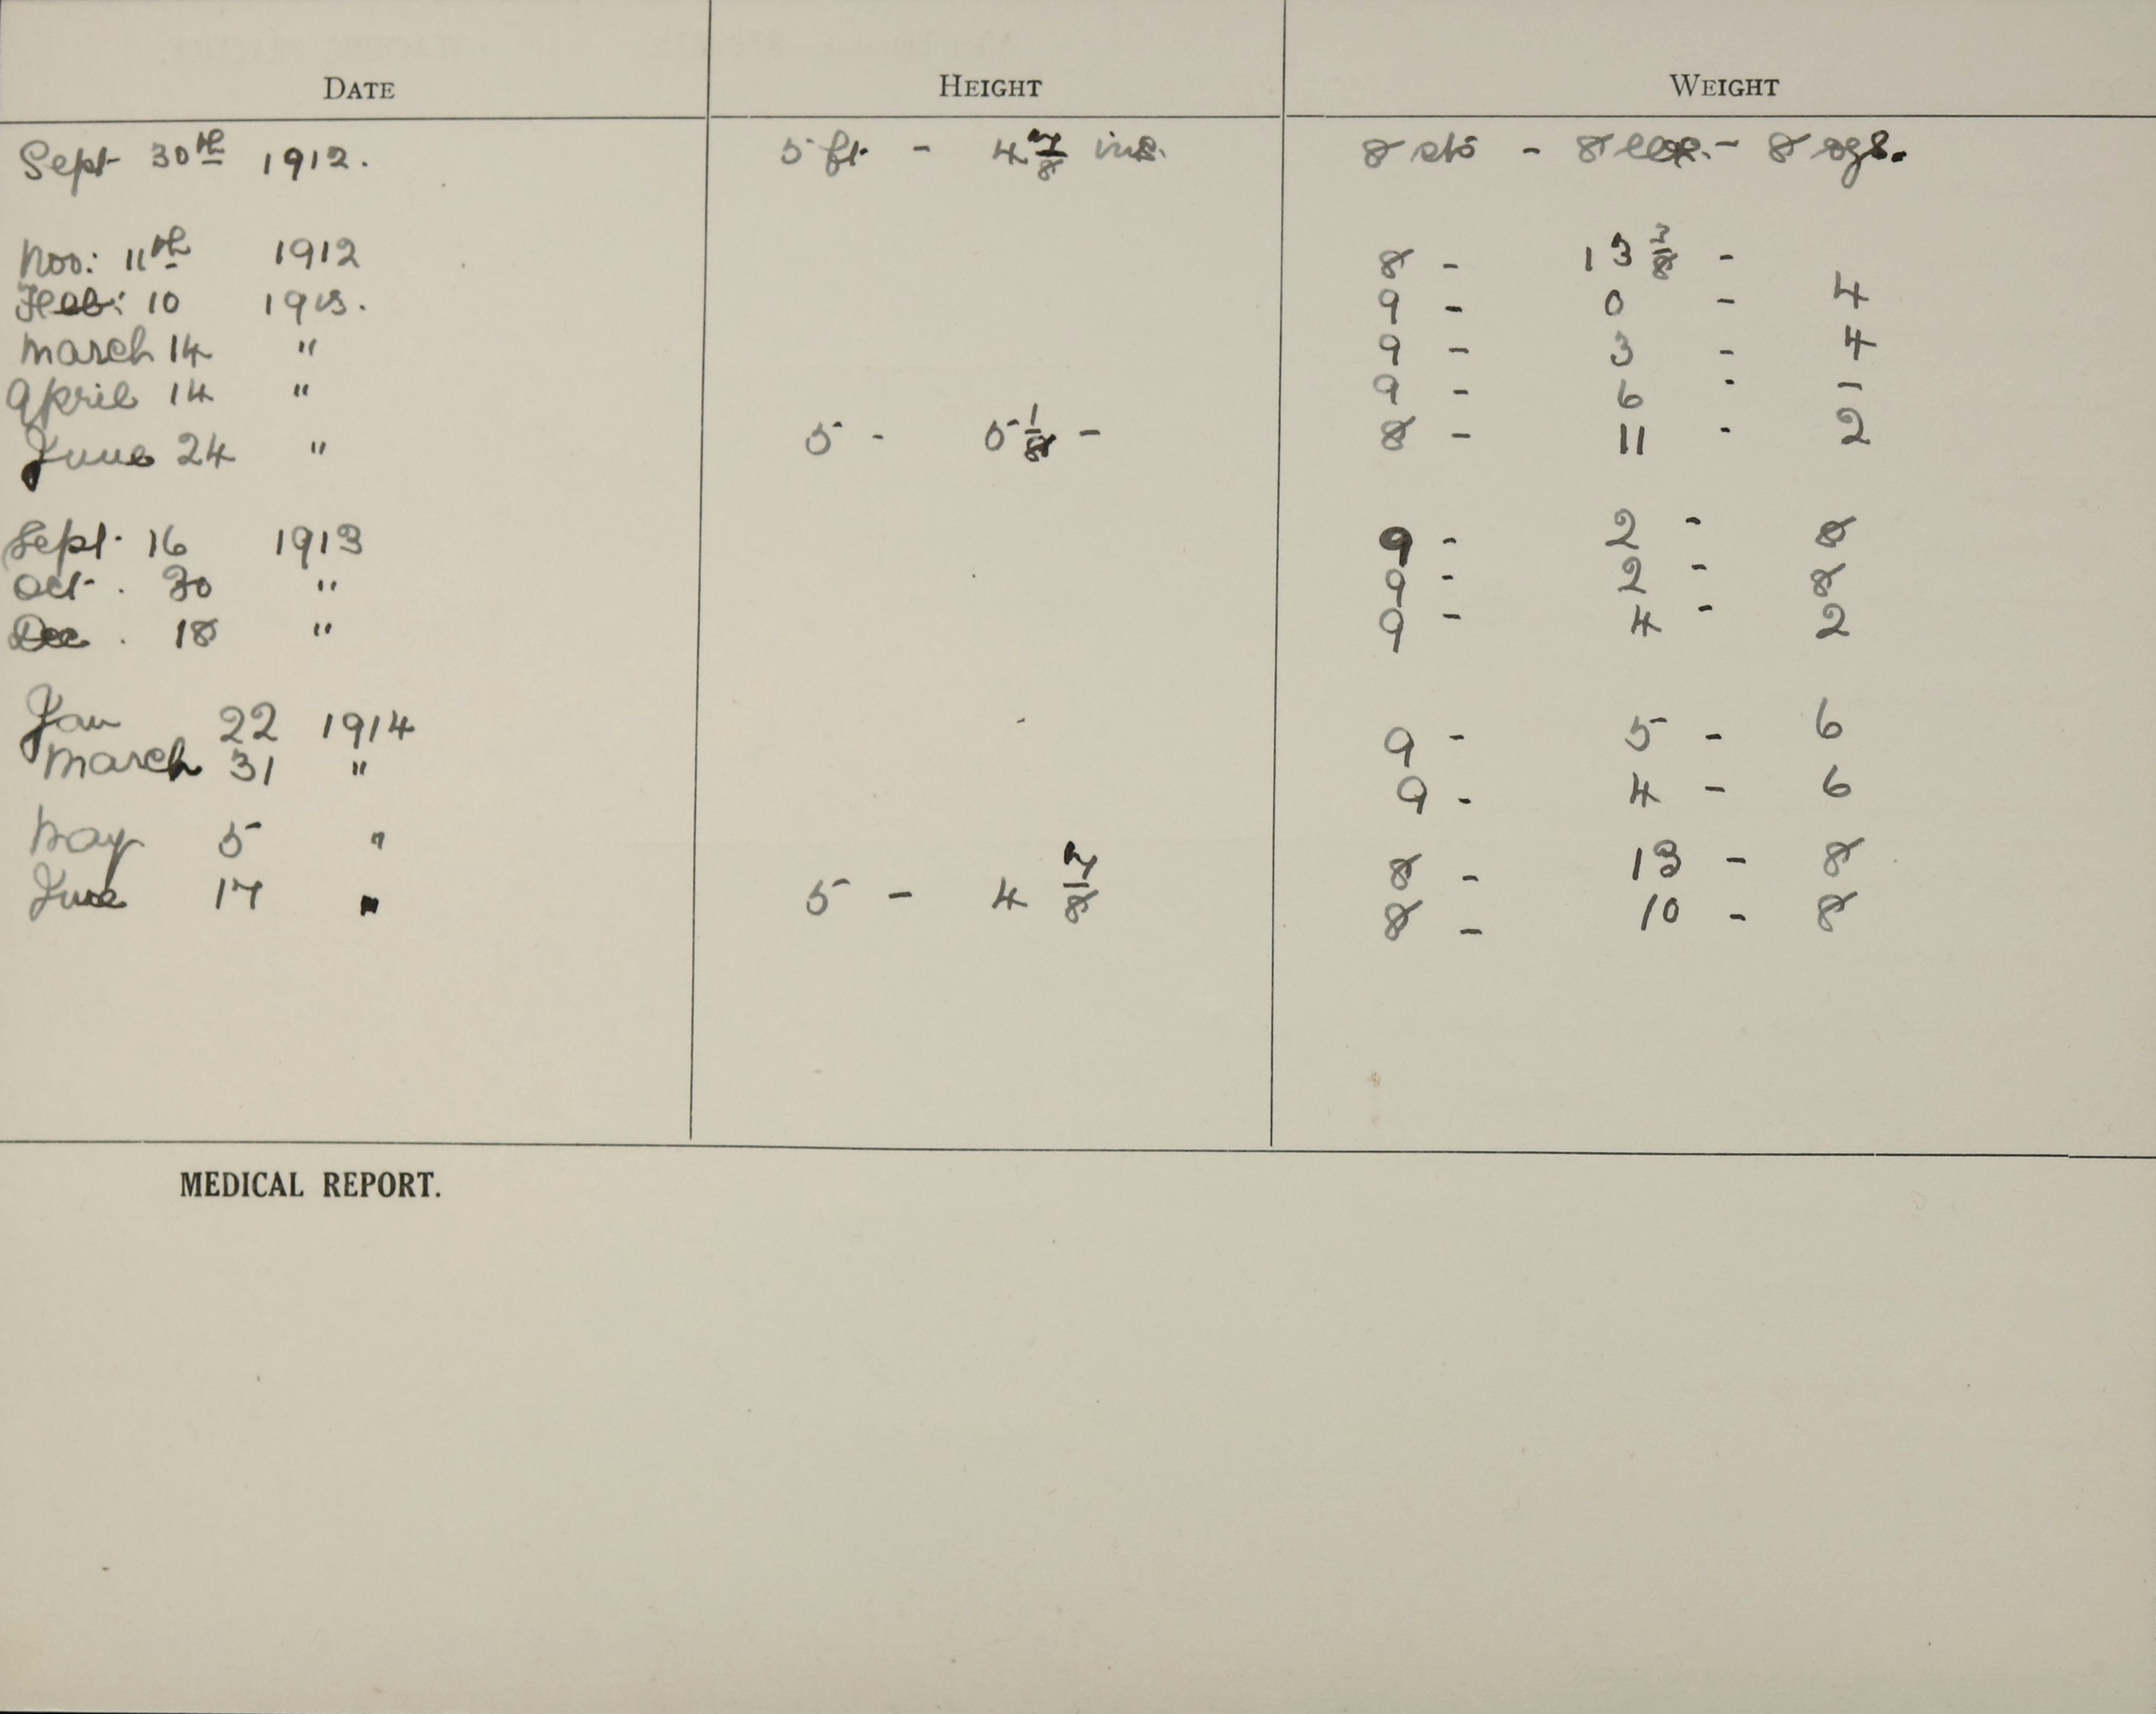 DATE HEIGHT WEIGHT
Sept 30th 1912. 5 ft. - 4 7/8 ins. 8 sts - 8 lbs. - 8 ozs.
Nov: 11th 1912 8 - 13 3/8 -
Feb: 10 1913. 9 - 0 - 4
March 14 " 9 - 3 - 4
April 14 " 9 - 6 - -
June 24 " 5 - 5 1/8 - 8 - 11 - 2
Sept. 16 1913 9 - 2 - 8
Oct. 30 " 9 - 2 - 8
Dec. 18 " 9 - 4 - 2
Jan 22 1914 9 - 5 - 6
March 31 " 9 - 4 - 6
May 5 " 8 - 13 - 8
June 17 " 5 - 4 7/8 8 - 10 - 8
MEDICAL REPORT.